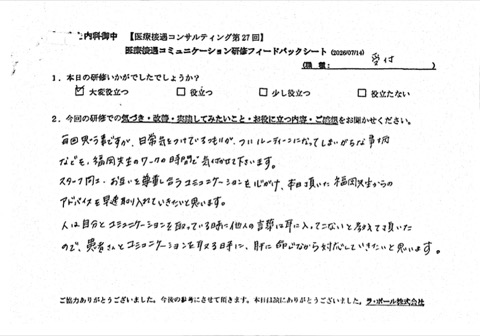 た内科御中 【医療接遇コンサルティング第27回】
医療接遇コミュニケーション研修フィードバックシート (2026/07/14)
(職種: 受付 )
1．本日の研修いかがでしたでしょうか？
☑ 大変役立つ □ 役立つ □ 少し役立つ □ 役立たない
2．今回の研修での気づき・改善・実践してみたいこと・お役に立つ内容・ご感想をお聞かせください。
毎回思う事ですが、日常気をつけているつもりが、ついルーティーンになってしまいがちな事柄
などを、福岡先生のワークの時間で気付かせて下さいます。
スタッフ同士、お互いを尊重し合うコミュニケーションを心がけ、本日頂いた福岡先生からの
アドバイスを早速取り入れていきたいと思います。
人は自分とコミュニケーションを取っている時に他人の言葉は耳に入ってこないと教えて頂いた
ので、患者さんとコミュニケーションを取る時に、肝に命じながら対応していきたいと思います。
ご協力ありがとうございました。今後の参考にさせて頂きます。本日は誠にありがとうございました。 ラ・ポール株式会社